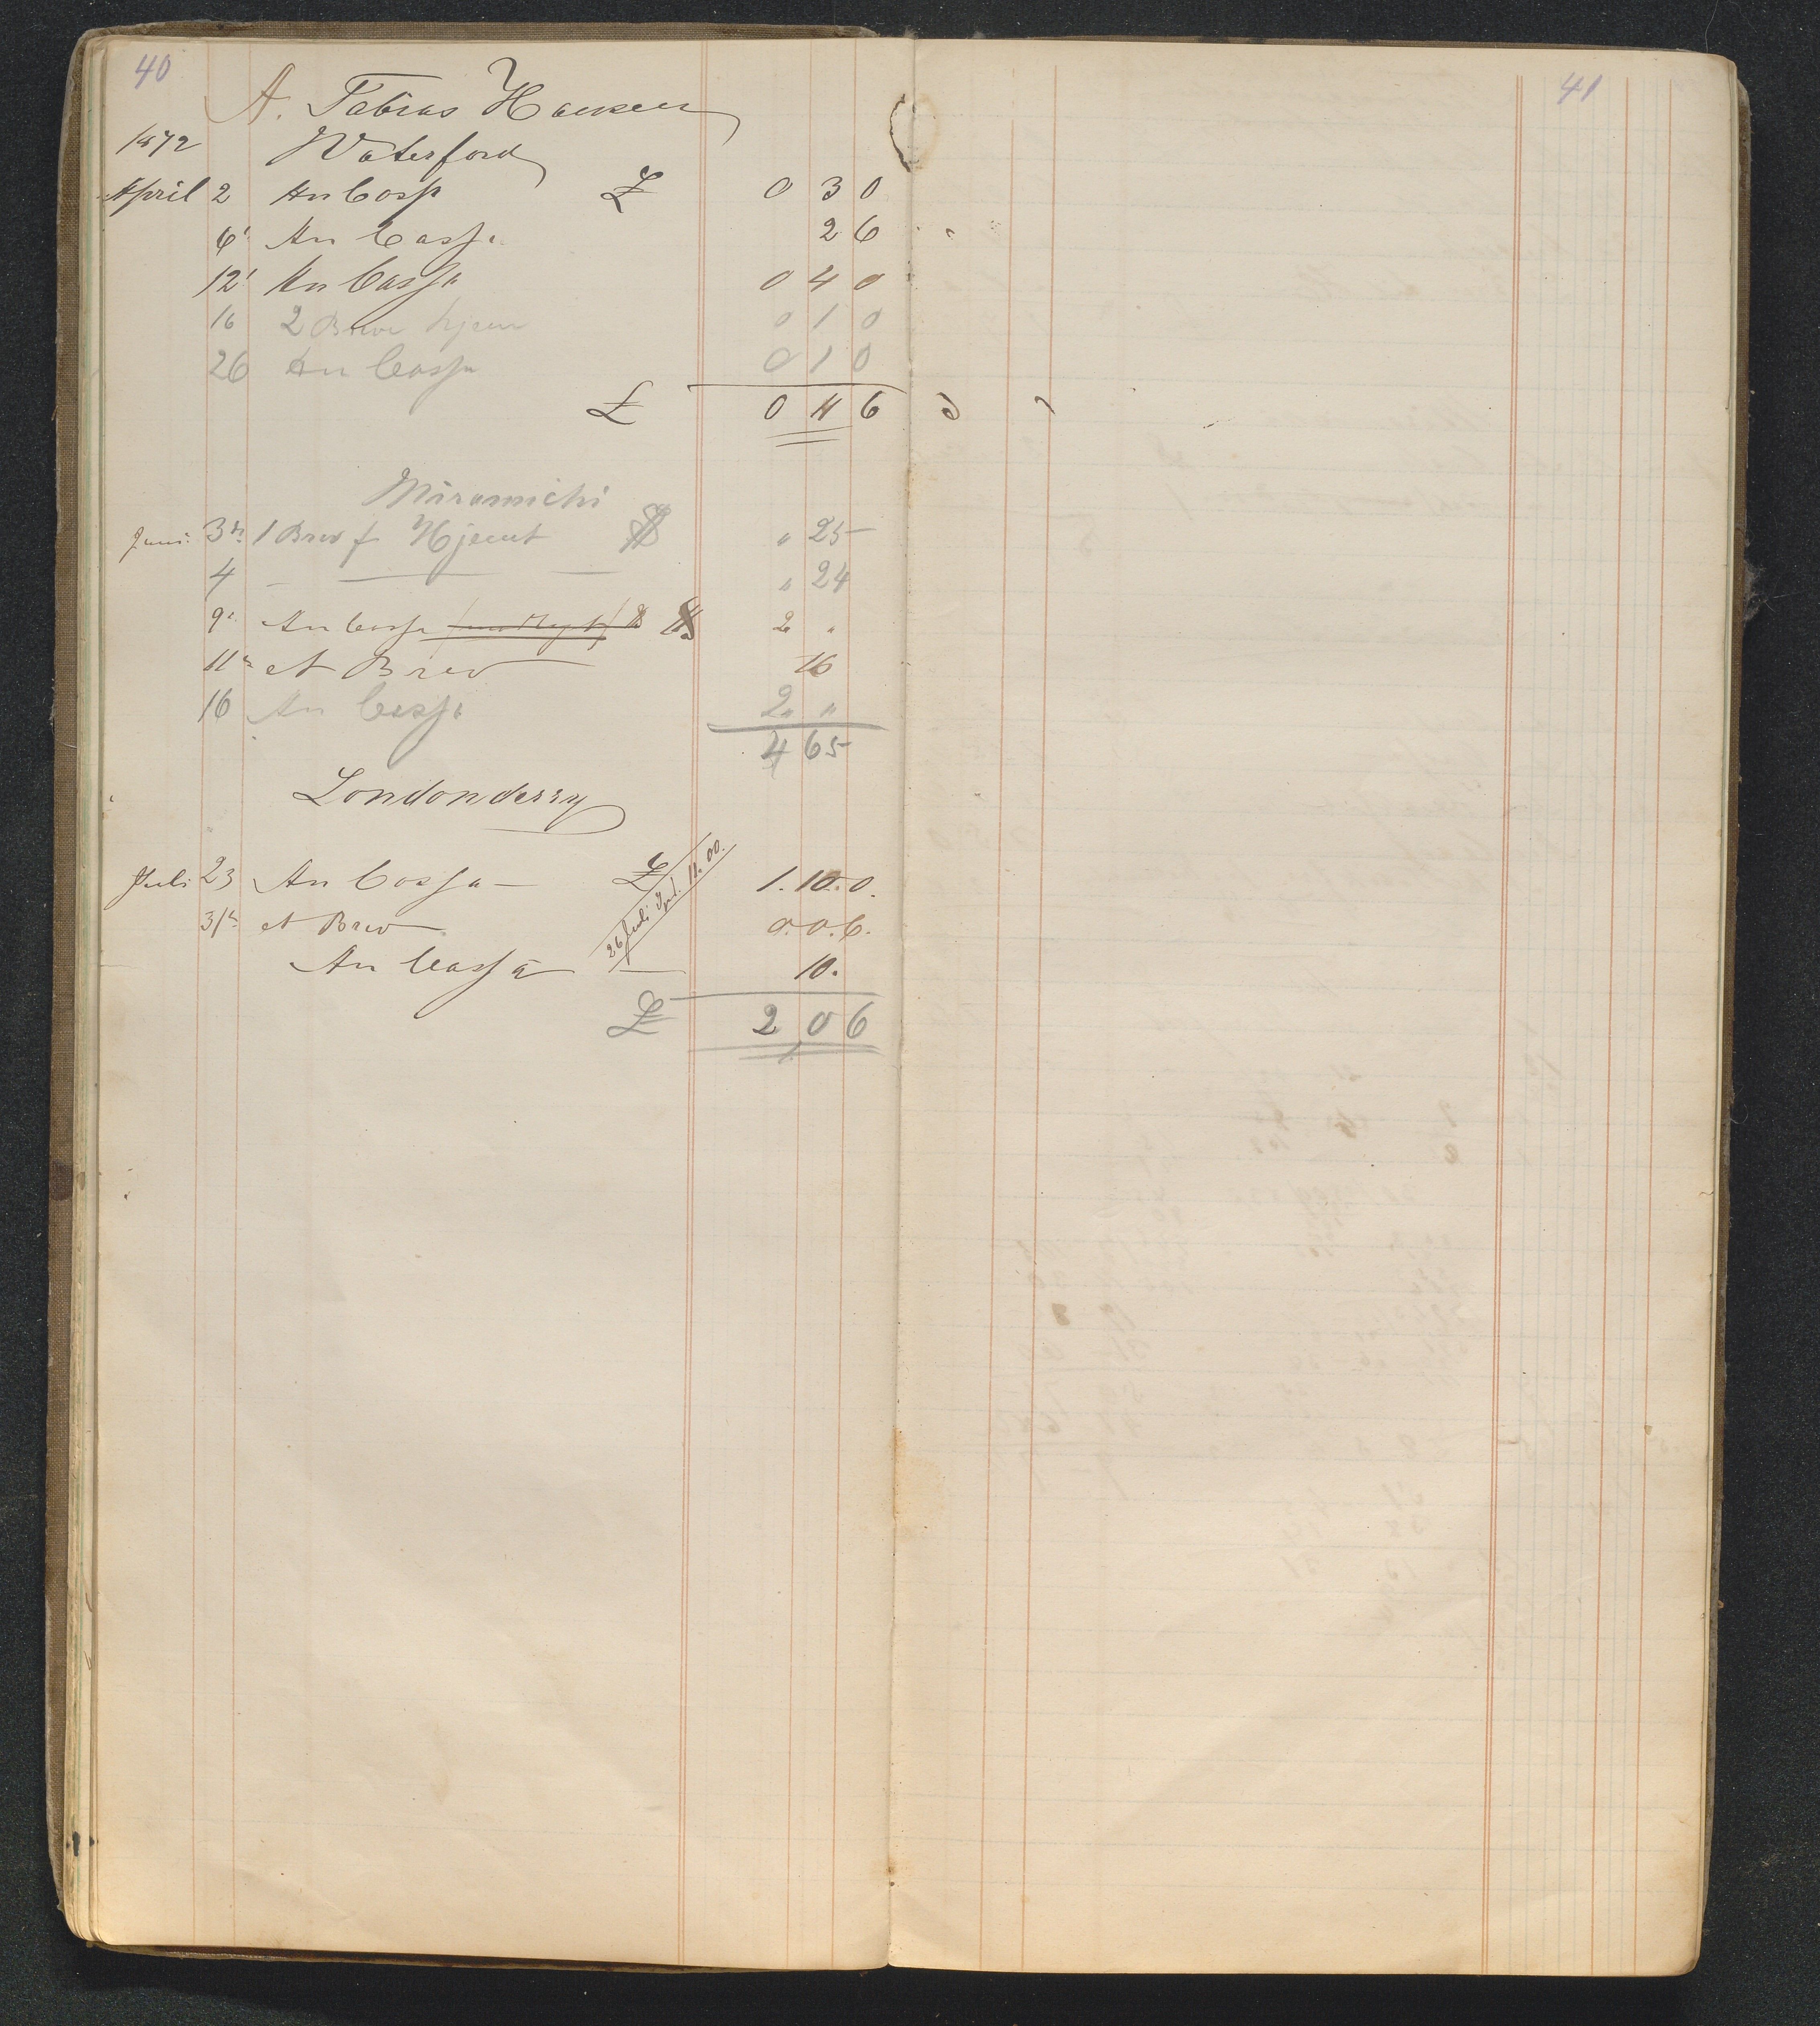 40
A. Tobias Hansen
1872 Waterford
April 2 An Cassa £ 0 3 0
6' An Cassa 2 6
12' An Cassa 0 4 0
16 2 Breve hjem 0 1 0
26 An Cassa 0 1 0
£ 0 11 6
Miramichi
Juni 3die 1 Brev f Hjemt $ " 25
4 - — — " 24
9' An Cassa $ 2 "
11te et Brev 16
16 An Cassa 2 " "
4 65
Londonderry
Juli 23 An Cassa — £ 1.10.0.
26 Juli 11.00.
31te et Brev 0.0.6.
An Cassa — 10.
£ 2 0 6
41